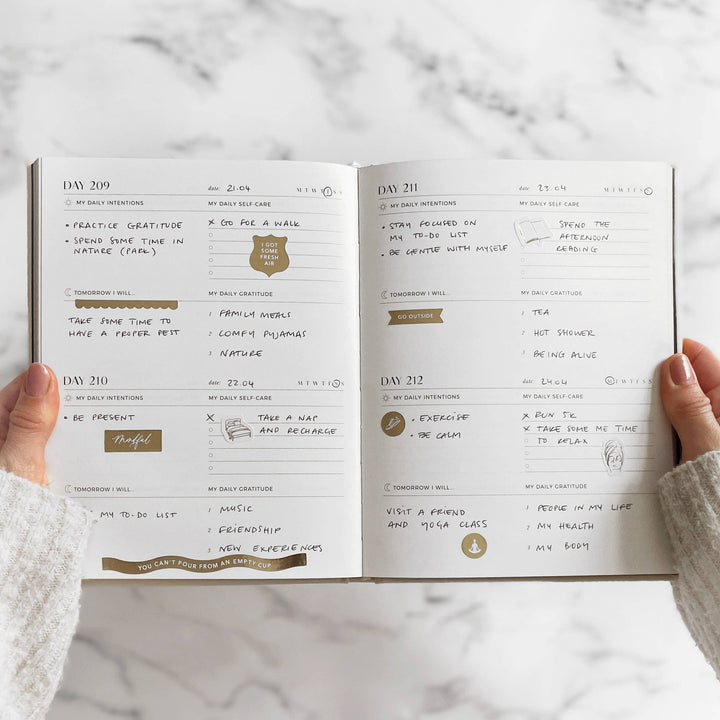 DAY 209 date: 21.04 M T W T F S S
MY DAILY INTENTIONS MY DAILY SELF-CARE
• PRACTICE GRATITUDE
• SPEND SOME TIME IN
NATURE (PARK)
X GO FOR A WALK
I GOT
SOME
FRESH
AIR
TOMORROW I WILL... MY DAILY GRATITUDE
TAKE SOME TIME TO
HAVE A PROPER REST
1 FAMILY MEALS
2 COMFY PYJAMAS
3 NATURE
DAY 210 date: 22.04 M T W T F S S
MY DAILY INTENTIONS MY DAILY SELF-CARE
• BE PRESENT
Mindful
X TAKE A NAP
AND RECHARGE
TOMORROW I WILL... MY DAILY GRATITUDE
MY TO-DO LIST
1 MUSIC
2 FRIENDSHIP
3 NEW EXPERIENCES
YOU CAN'T POUR FROM AN EMPTY CUP
DAY 211 date: 23.04 M T W T F S S
MY DAILY INTENTIONS MY DAILY SELF-CARE
• STAY FOCUSED ON
MY TO-DO LIST
• BE GENTLE WITH MYSELF
SPEND THE
AFTERNOON
READING
TOMORROW I WILL... MY DAILY GRATITUDE
GO OUTSIDE
1 TEA
2 HOT SHOWER
3 BEING ALIVE
DAY 212 date: 24.04 M T W T F S S
MY DAILY INTENTIONS MY DAILY SELF-CARE
• EXERCISE
• BE CALM
X RUN 5K
X TAKE SOME ME TIME
TO RELAX
TOMORROW I WILL... MY DAILY GRATITUDE
VISIT A FRIEND
AND YOGA CLASS
1 PEOPLE IN MY LIFE
2 MY HEALTH
3 MY BODY